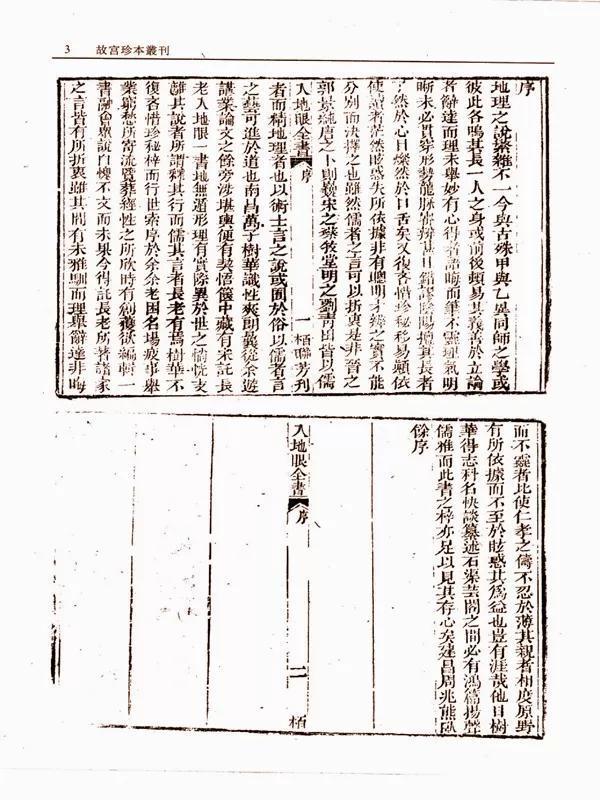 3 故宮珍本叢刊
序
地理之說紛雜不一今與古殊甲與乙異同師之學或
彼此各鳴其長一人之身或前後頓易其義善於立論
者辭達而理未舉妙有心得者語晦而筆不靈理氣明
晰未必貫穿形勢龍脈審辨甚日錯謬陰陽擅其長者
了然於心目燦然於口舌矣又復吝惜珍秘移易顛依
使讀者茫然眩惑失所依據非有聰明才辨之實不能
分別而決擇之也雖然儒者之言可以折衷是非晉之
郭景純唐之卜則巍宋之蔡牧堂明之劉青田皆以儒
入地眼全書 序 一 栢聯芳刋
者而精地理者也以術士言之說或囿於俗以儒者言
之藝可進於道也南昌萬子樹華識性爽朗義從余遊
講業論文之餘旁涉堪輿便有契悟篋中藏有宋託長
老入地眼一書地無遁形理有實際異於世之惝恍支
離其說者所謂釋其行而儒其言者長老有焉樹華不
復吝惜珍秘梓而行世索序於余余老困名場疲事舉
業窮愁所寄流覽葬經性之所欣時有創獲欲編輯一
書融會羣說自愧不文而未果今得託長老所著諸家
之言皆有所折衷雖其間有未雅馴而理舉辭達非晦
而不靈者比使仁孝之儔不忍於薄其親者相度原野
有所依據而不至於眩惑其為益也豈有涯哉他日樹
華得志科名快談纂述石渠芸閣之間必有鴻篇揚聲
儒雅而此書之梓亦足以見其存心矣建昌周兆熊臥
餘序
入地眼全書 序 二 栢